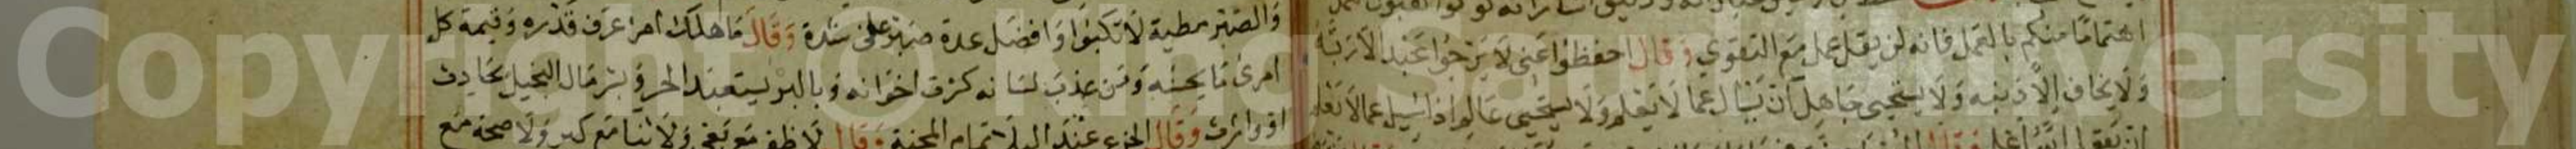 اهتماما منكم بالعمل فانه لن يقل عمل مع التقوى وقال احفظوا عنى لا يرجوا عبد الا ربه
ولا يخاف الا ذنبه ولا يستحيى جاهل ان يسال عما لا يعلم ولا يستحيى عالم اذا سيل عما لا يعلم
والصبر مطية لا تكبوا وافضل عدة صبر على شدة وقال ما هلك امرء عرف قدره وقيمة كل
امرئ ما يحسنه ومن عذب لسانه كثرت اخوانه وبالبر يستعبد الحر وبشر مال البخيل بحادث
او وارث وقال الجزع عند البلا تمام المحنة وقال لا ظفر مع بغى ولا ثنا مع كبر ولا صحة مع
Copyright © University